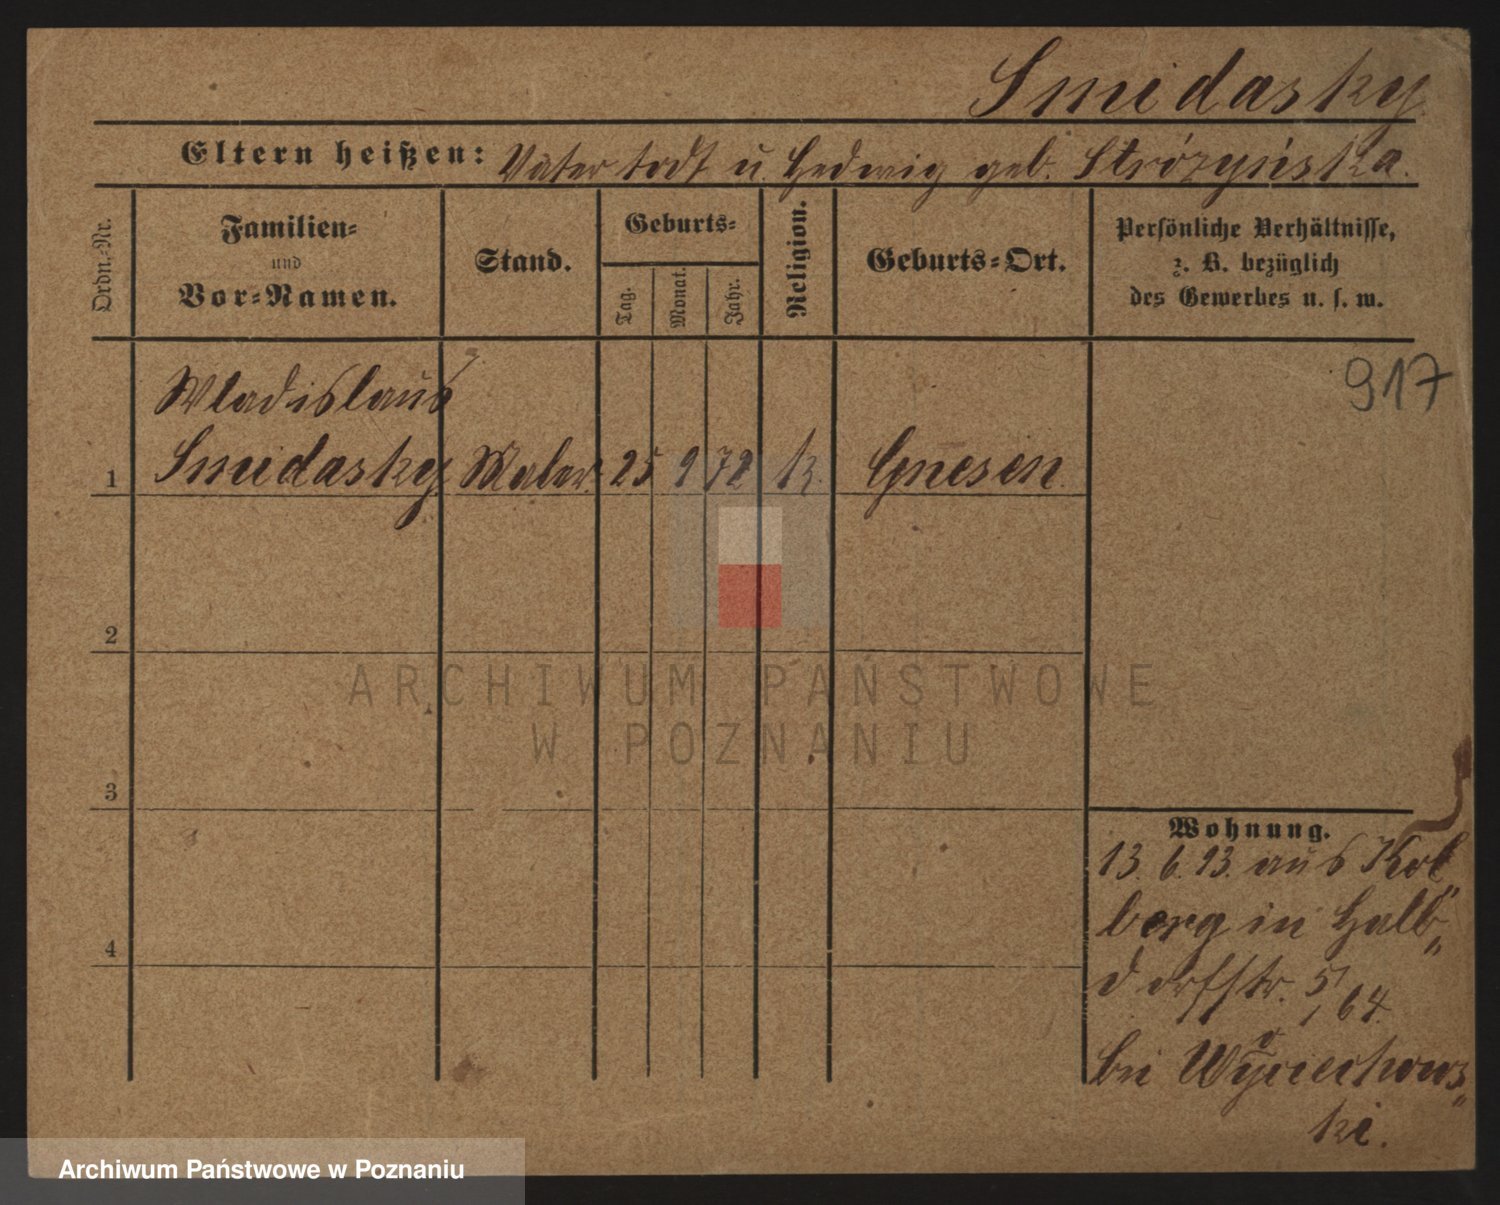 Smidasky.
Eltern heißen: Vater todt u. Hedwig geb. Strózyńska.
Ordn.-Nr.
Familien-
und
Vor-Namen.
Stand.
Geburts-
Tag.
Monat.
Jahr.
Religion.
Geburts-Ort.
Persönliche Verhältnisse,
z. B. bezüglich
des Gewerbes u. s. w.
917
Wladislaus
1 Smidasky Maler. 25 9 72 k. Gnesen.
2
ARCHIWUM PAŃSTWOWE
W POZNANIU
3
Wohnung.
13. 6. 93. aus Kol„
berg in Halb„
dorfstr. 5/64.
4
bei Wojciechows„
ki.
Archiwum Państwowe w Poznaniu